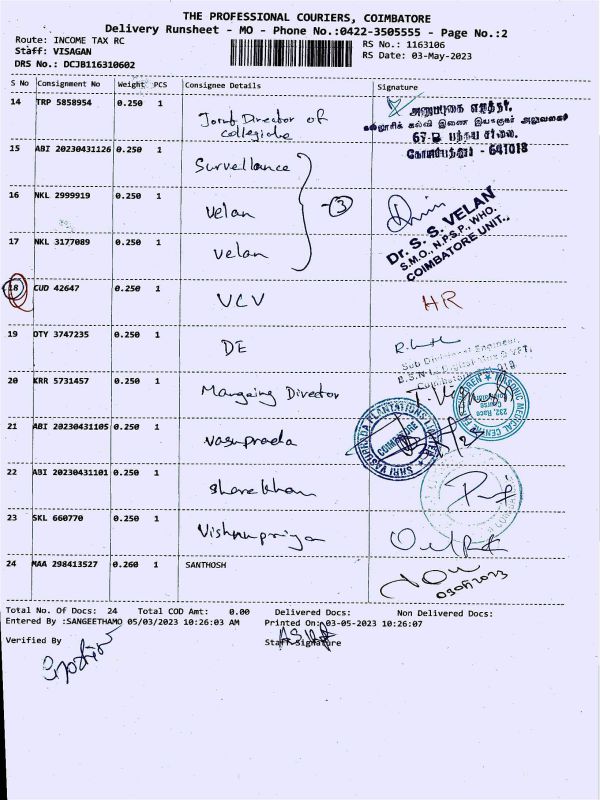 THE PROFESSIONAL COURIERS, COIMBATORE
Delivery Runsheet - MO - Phone No.:0422-3505555 - Page No.:2
Route: INCOME TAX RC
Staff: VISAGAN
DRS No.: DCJB116310602
RS No.: 1163106
RS Date: 03-May-2023
S No Consignment No Weight PCS Consignee Details Signature
14 TRP 5858954 0.250 1 Joint Director of
Collegiate
அலுவலகம்
641018
15 ABI 20230431126 0.250 1 Surveillance
16 NKL 2999919 0.250 1 Velan
3
Dr. S. S. VELAN
S.M.O., N.P.S.P., WHO.
COIMBATORE UNIT.,
17 NKL 3177089 0.250 1 Velan
18 CUD 42647 0.250 1 VCV HR
19 DTY 3747235 0.250 1 DE
Sub Divisional Engineer
20 KRR 5731457 0.250 1 Mangaing Director
232, Race
Course
21 ABI 20230431105 0.250 1 Vasuprada
SHRI VASUPRADA PLANTATIONS LIMITED
COIMBATORE
22 ABI 20230431101 0.250 1 Sharekhan
23 SKL 660770 0.250 1 Vishnupriya
24 MAA 298413527 0.260 1 SANTHOSH
Total No. Of Docs: 24 Total COD Amt: 0.00 Delivered Docs: Non Delivered Docs:
Entered By :SANGEETHAMO 05/03/2023 10:26:03 AM Printed On:03-05-2023 10:26:07
Verified By Staff Signature